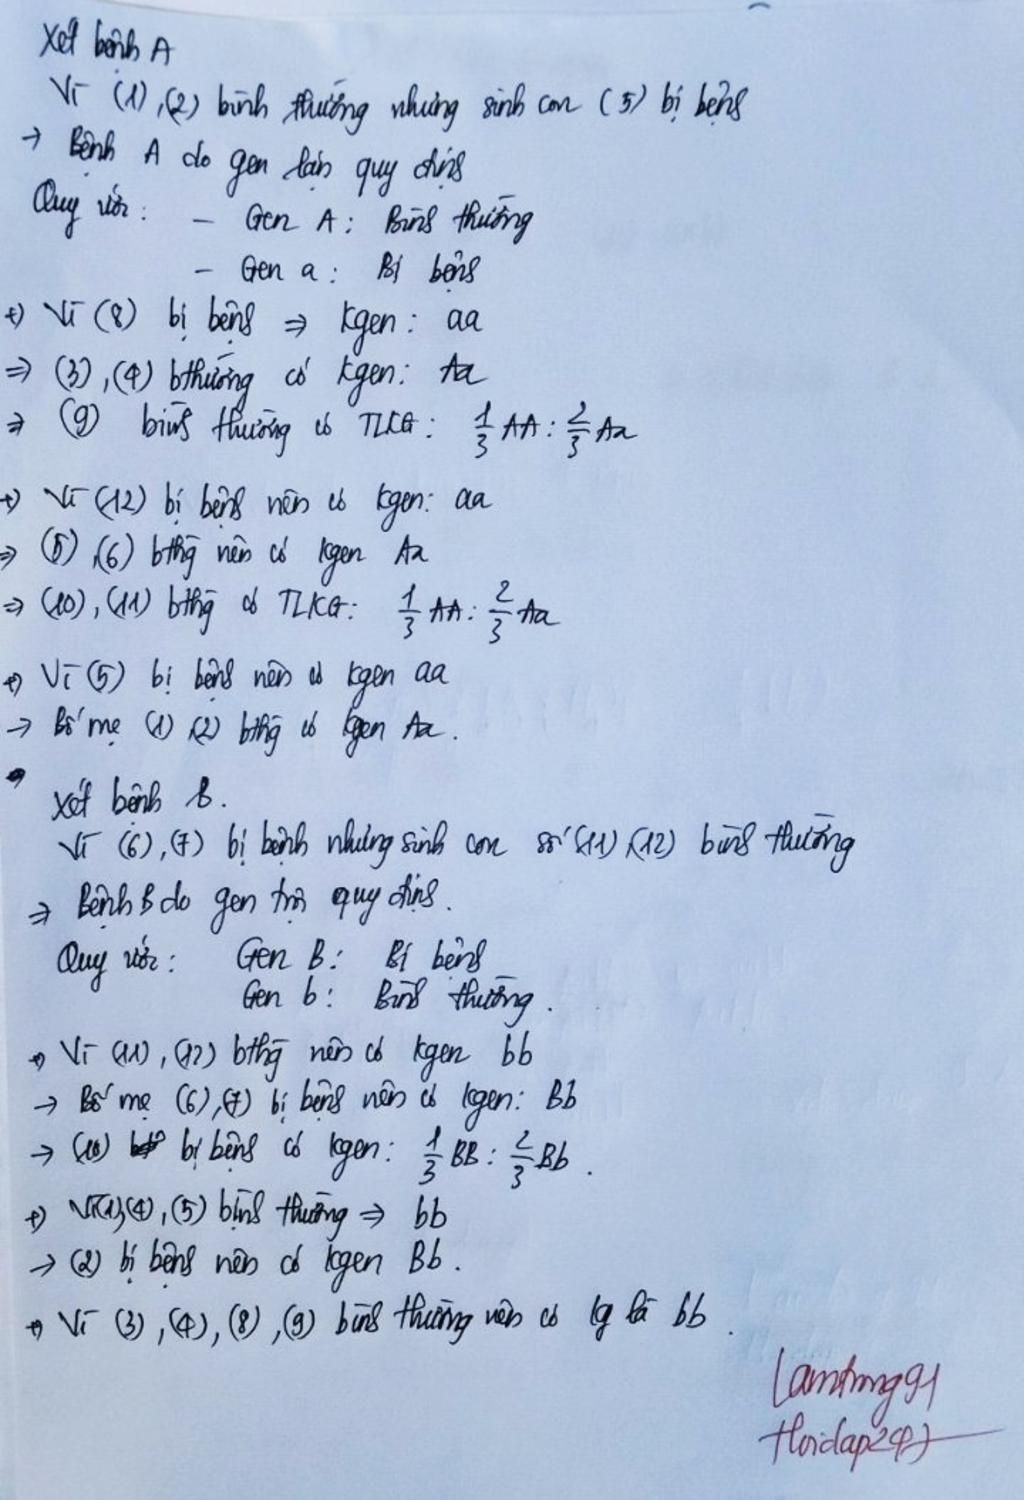 Xét bệnh A
Vì (1), (2) bình thường nhưng sinh con (5) bị bệnh
→ Bệnh A do gen lặn quy định
Quy ước: - Gen A: Bình thường
- Gen a: Bị bệnh
+) Vì (8) bị bệnh ⇒ kgen: aa
⇒ (3), (4) bthường có kgen: Aa
⇒ (9) bình thường có TLKG: 1/3 AA : 2/3 Aa
+) Vì (12) bị bệnh nên có kgen: aa
⇒ (6), (6) bthg nên có kgen Aa
⇒ (10), (11) bthg có TLKG: 1/3 AA : 2/3 Aa
+) Vì (5) bị bệnh nên có kgen aa
→ Bố mẹ (1), (2) bthg có kgen Aa.
Xét bệnh B.
Vì (6), (7) bị bệnh nhưng sinh con số (11), (12) bình thường
⇒ Bệnh B do gen trội quy định.
Quy ước: Gen B: Bị bệnh
Gen b: Bình thường.
+) Vì (11), (12) bthg nên có kgen bb
→ Bố mẹ (6), (7) bị bệnh nên có kgen: Bb
→ (10) bị bệnh có kgen: 1/3 BB : 2/3 Bb.
+) Vì (1), (4), (5) bình thường ⇒ bb
→ (2) bị bệnh nên có kgen Bb.
+) Vì (3), (4), (8), (9) bình thường nên có kg là bb.
Lamtung91
Hoidap247